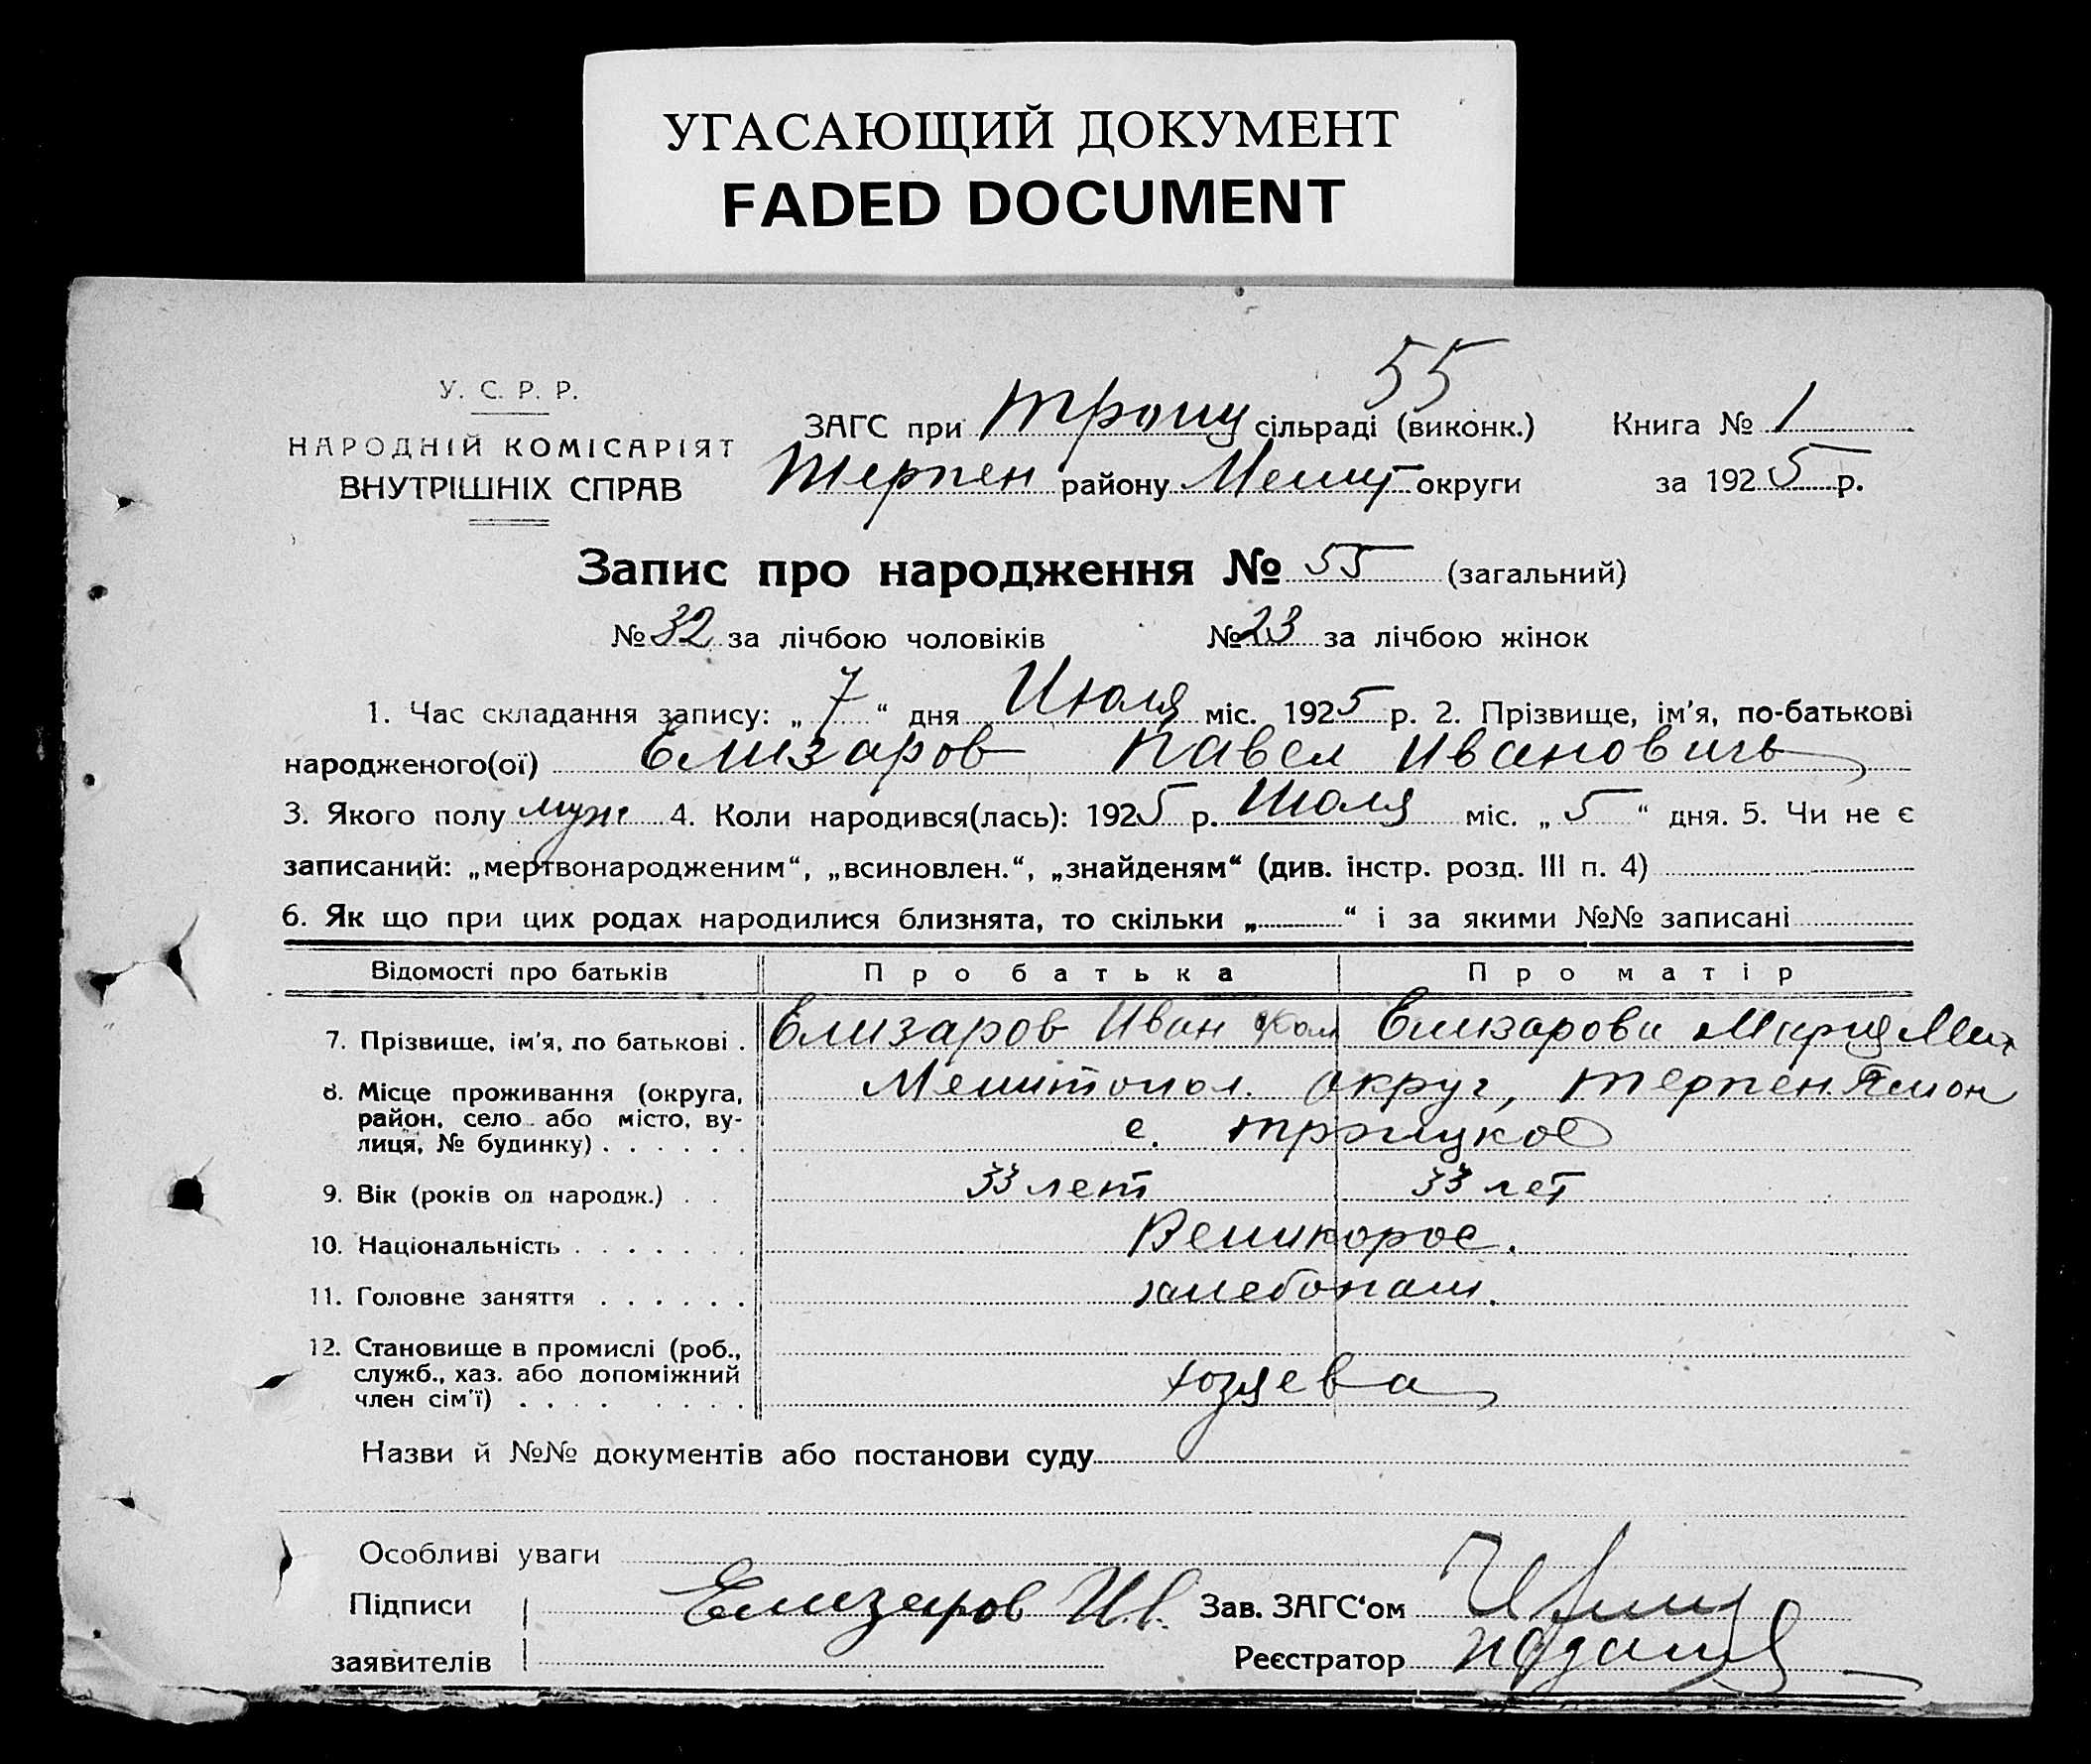 УГАСАЮЩИЙ ДОКУМЕНТ
FADED DOCUMENT
55
У. С. Р. Р.
НАРОДНІЙ КОМІСАРІЯТ
ВНУТРІШНІХ СПРАВ
ЗАГС при Троиц сільраді (виконк.) Книга № 1
Терпен району Мелит округи за 1925 р.
Запис про народження № 55 (загальний)
№ 32 за лічбою чоловіків № 23 за лічбою жінок
1. Час складання запису: „ 7 “ дня Июля міс. 1925 р. 2. Прізвище, ім'я, по-батькові
народженого(ої) Елизаров Павел Ивановичь
3. Якого полу муж 4. Коли народився(лась): 1925 р. Июля міс. „ 5 “ дня. 5. Чи не є
записаний: „мертвонародженим“, „всиновлен.“, „знайденям“ (див. інстр. розд. III п. 4)
6. Як що при цих родах народилися близнята, то скільки „ “ і за якими №№ записані
Відомості про батьків Про батька Про матір
7. Прізвище, ім'я, по батькові . Елизаров Иван Елизарова Мария Мих
8. Місце проживання (округа, Мелитопол. округ, Терпен.
район, село або місто, ву-
лиця, № будинку) . . . . . . с. Троицкое
9. Вік (років од народж.) . . 33 лет 33 лет
10. Національність . . . . . . . Великорос.
11. Головне заняття . . . . . . хлебопаш.
12. Становище в промислі (роб.,
служб., хаз. або допоміжний
член сім'ї) . . . . . . . . хозяева
Назви й №№ документів або постанови суду
Особливі уваги
Підписи Елизаров Ив. Зав. ЗАГС'ом
заявителів Реєстратор